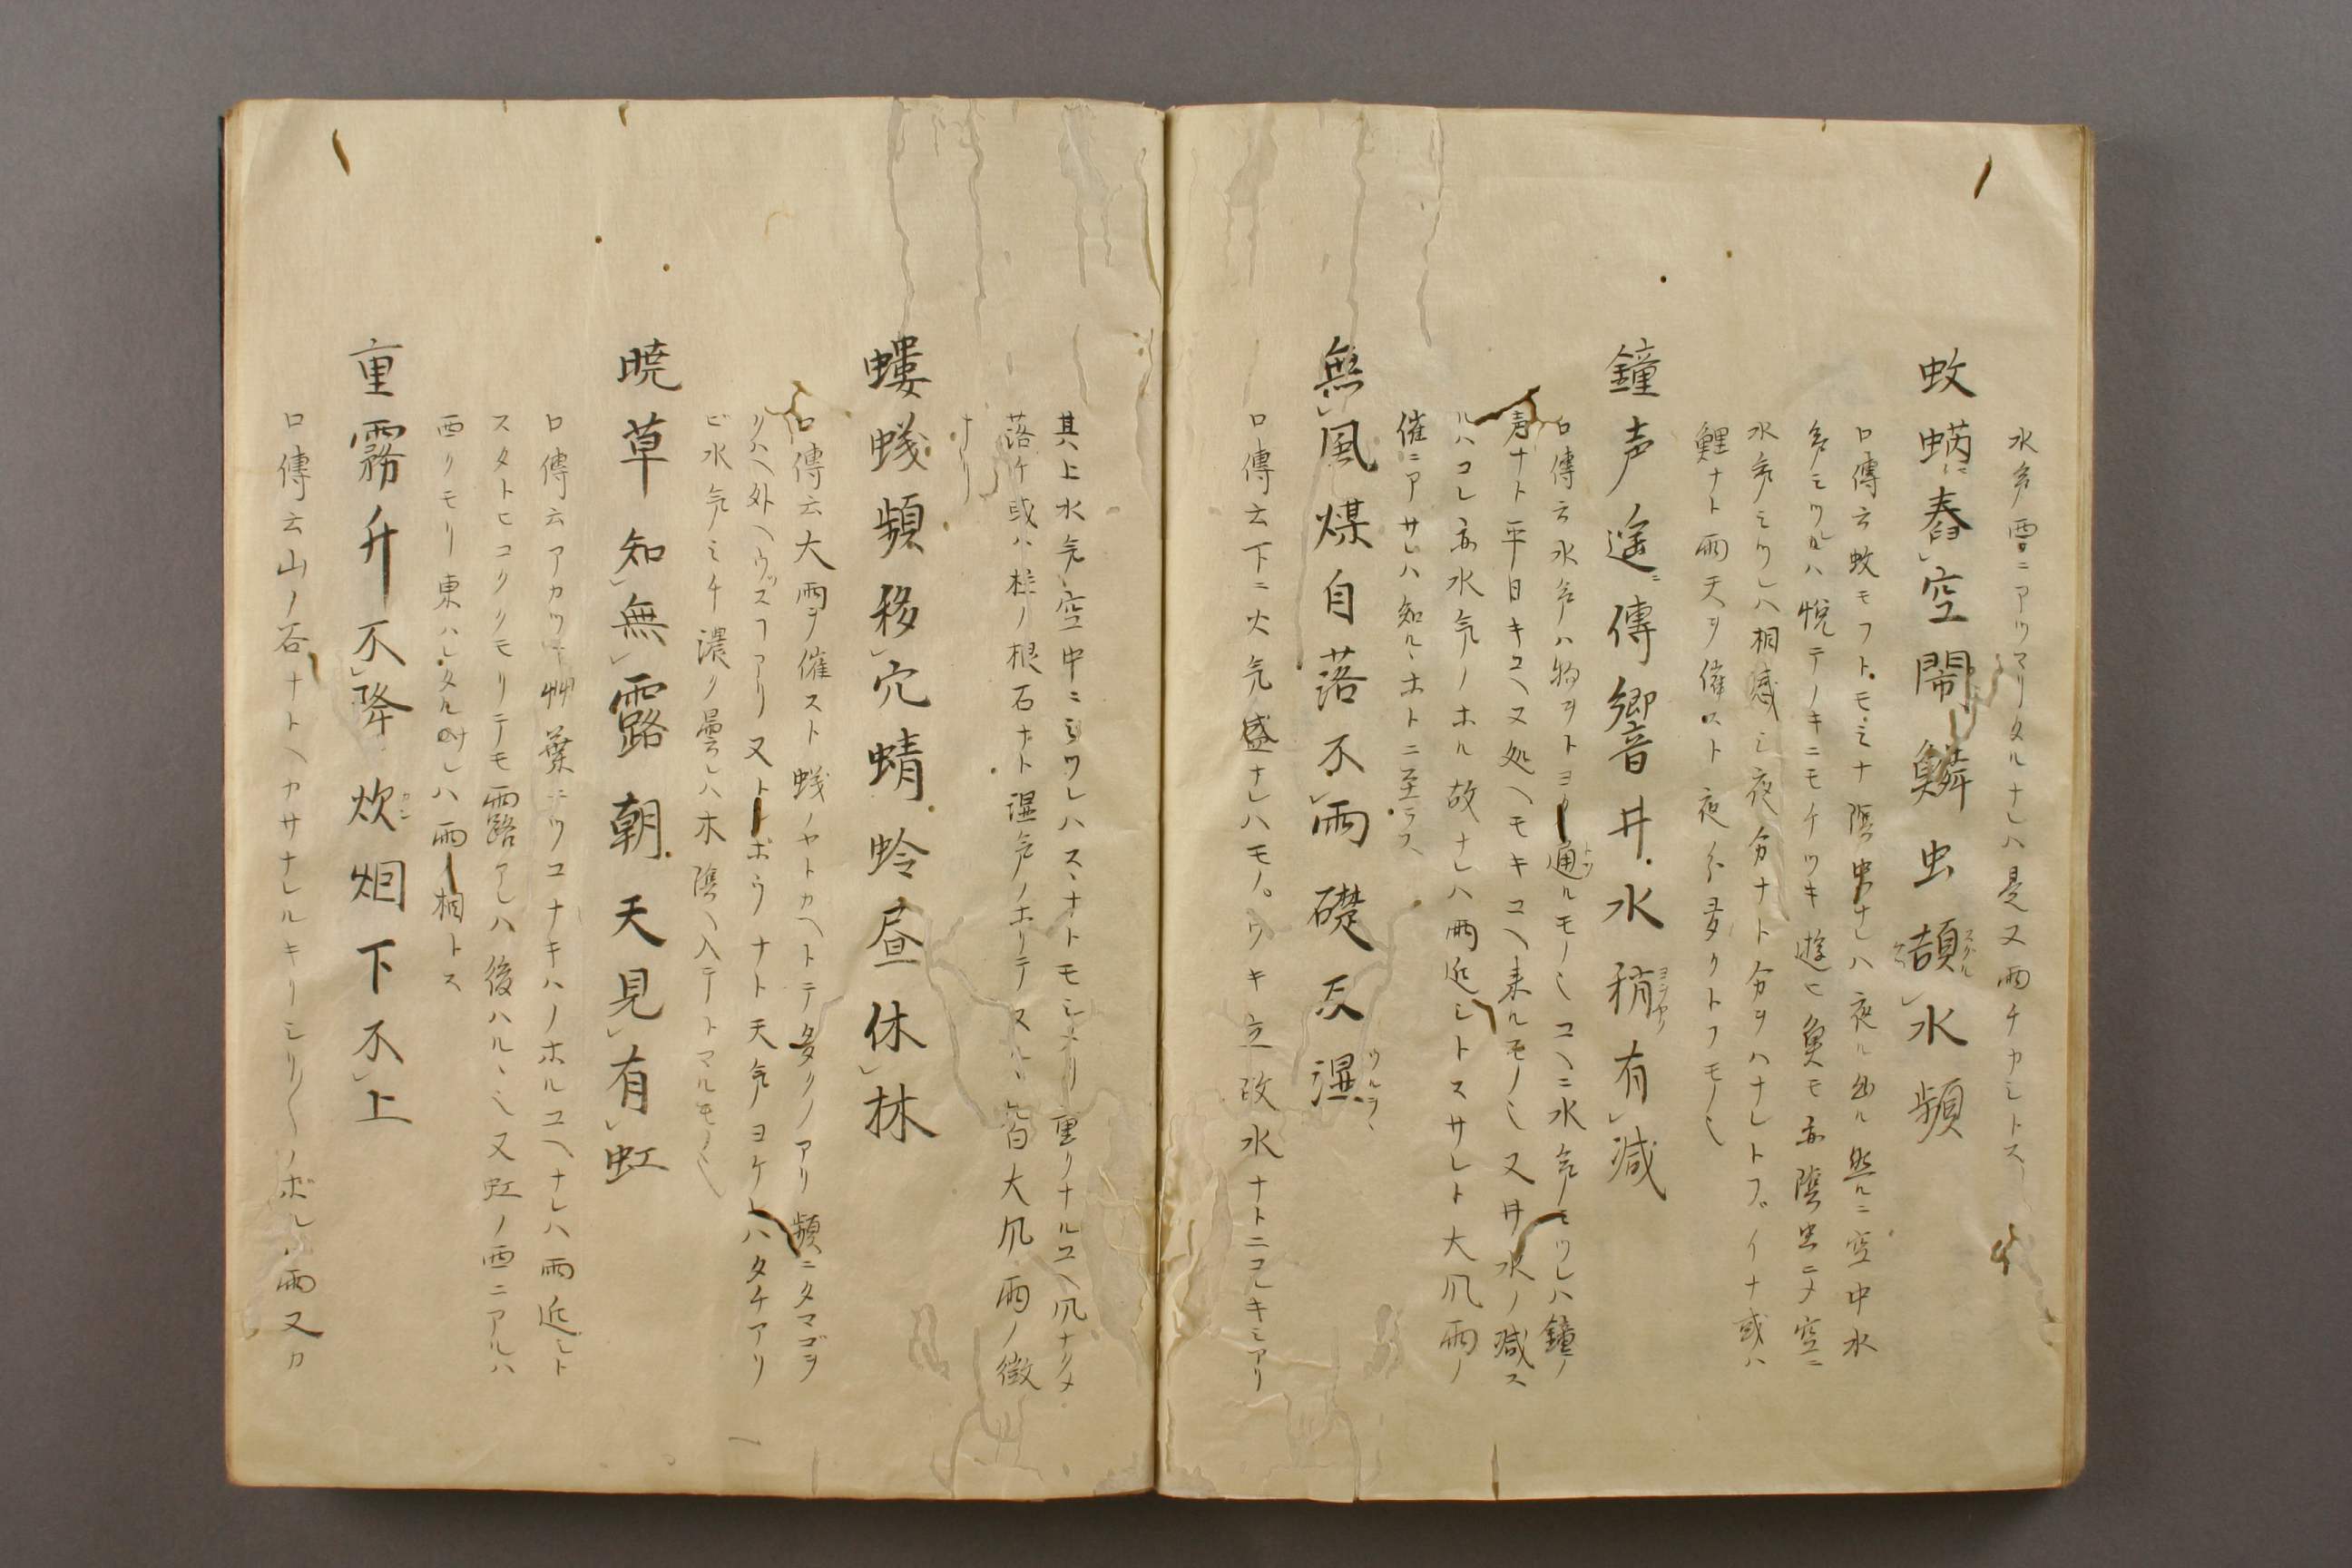 水気雲ニアツマリタルナレハ是又雨チカシトス
蚊蜹ニ舂空閙鱗虫頡水頻
口傳云蚊モフトモミナ陰虫ナレハ夜ル出ル然ルニ空中水
気ミツレハ悦テノキニモケツキ遊ヒ魚モ亦陰虫ニテ空ニ
水気ミツレハ相感シ夜分ナト分ヲハナレトフイナ或ハ
鯉ナト雨天ヲ催スト夜分多クトフモノ也
鐘声遥ニ傳響井水稍有減
口傳云水気ハ物ヲトヨク通ルモノ也コヘニ水気ミツレハ鐘ノ
声ナト平日キコヘヌ処ヘモキコヘ来ルモノ也又井水ノ減ス
ルハコレ亦水気ノホル故ナレハ雨近シトスサレト大风雨ノ
催ニアサレハ知ルヽホトニ至ラス
無風煤自落不雨礎反湿
口傳云下ニ火気盛ナレハモノヽウキ立故水ナトニコレキミアリ
其上水気空中ニミツレハスヽナトモシメリ重クナルユヘ风ナクメ
落ケ或ハ柱ノ根石ナト湿気ノホリテヌルヽ皆大风雨ノ徴
ナリ
螻蟻頻移穴蜻蛉昼休林
口傳云大雨ヲ催スト蟻ノヤトカヘトテ多クノアリ頻ニタマゴヲ
クハヘ外ヘウツスフアリ又トンボウナト天気ヨケレハタチアリ
ビ水気ミチ濃ク曇レハ木陰ヘ入テトマルモノ也
暁草知無露朝天見有虹
口傳云アカツキ艸葉ニツユナキハノホルユヘナレハ雨近シト
スタトヒコクヽモリテモ雨露アレハ後ハルヽ也又虹ノ西ニアルハ
西クモリ東ハレタル時ハ雨ノ相トス
重霧升不降炊烟下不上
口傳云山ノ谷ナトヘカサナレルキリシリ〳〵ノボルハ雨又カ